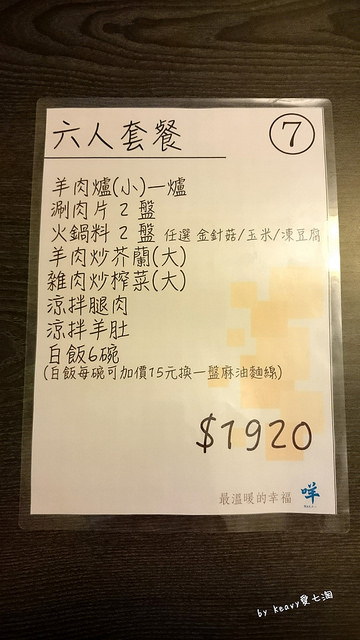 六人套餐 7
羊肉爐(小)一爐
涮肉片 2 盤
火鍋料 2 盤 任選 金針菇/玉米/凍豆腐
羊肉炒芥蘭(大)
雜肉炒榨菜(大)
涼拌腿肉
涼拌羊肚
白飯6碗
(白飯每碗可加價15元換一盤麻油麵線)
$1920
最溫暖的幸福 咩
by keavy愛七淘